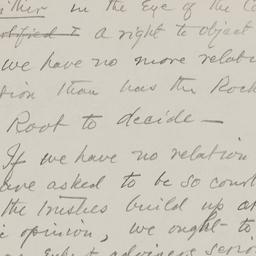 either in the Eye of the Co
notified I a right to object
we have no more relati
tion than has the Rock
Root to decide —
If we have no relation
ave asked to be so const
the Trustees build up a
c opinion, we ought to
an Expert advisers serio